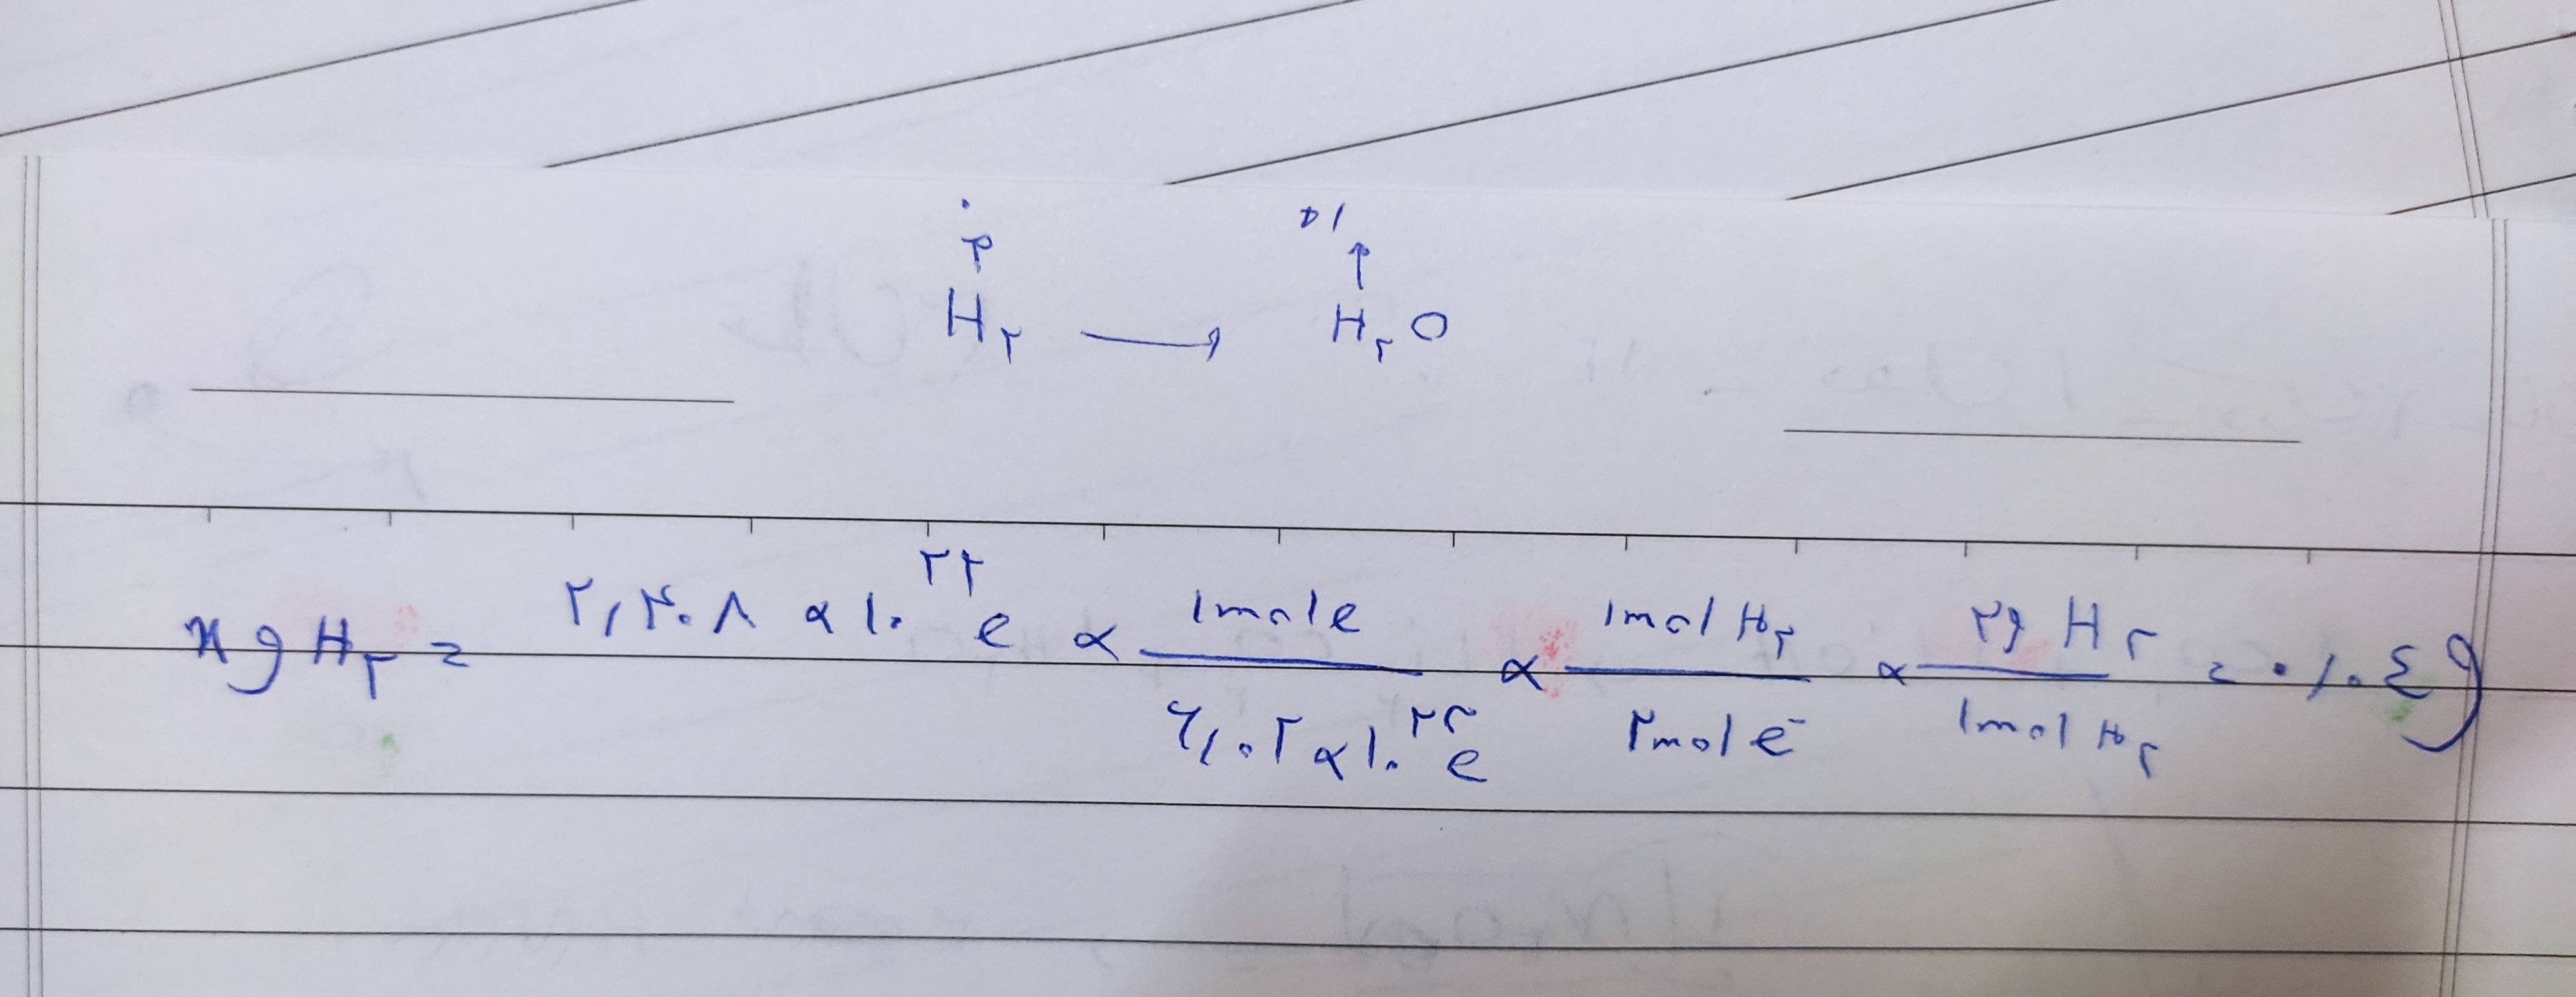 ۰ +۱
↑ ↑
H۲ ⟶ H۲O
x g H۲ = ۲,۴۰۸ × ۱۰^۲۲ e × ۱mol e / ۶,۰۲ × ۱۰^۲۳ e × ۱mol H۲ / ۲mol e⁻ × ۲g H۲ / ۱mol H۲ = ۰,۰٤g